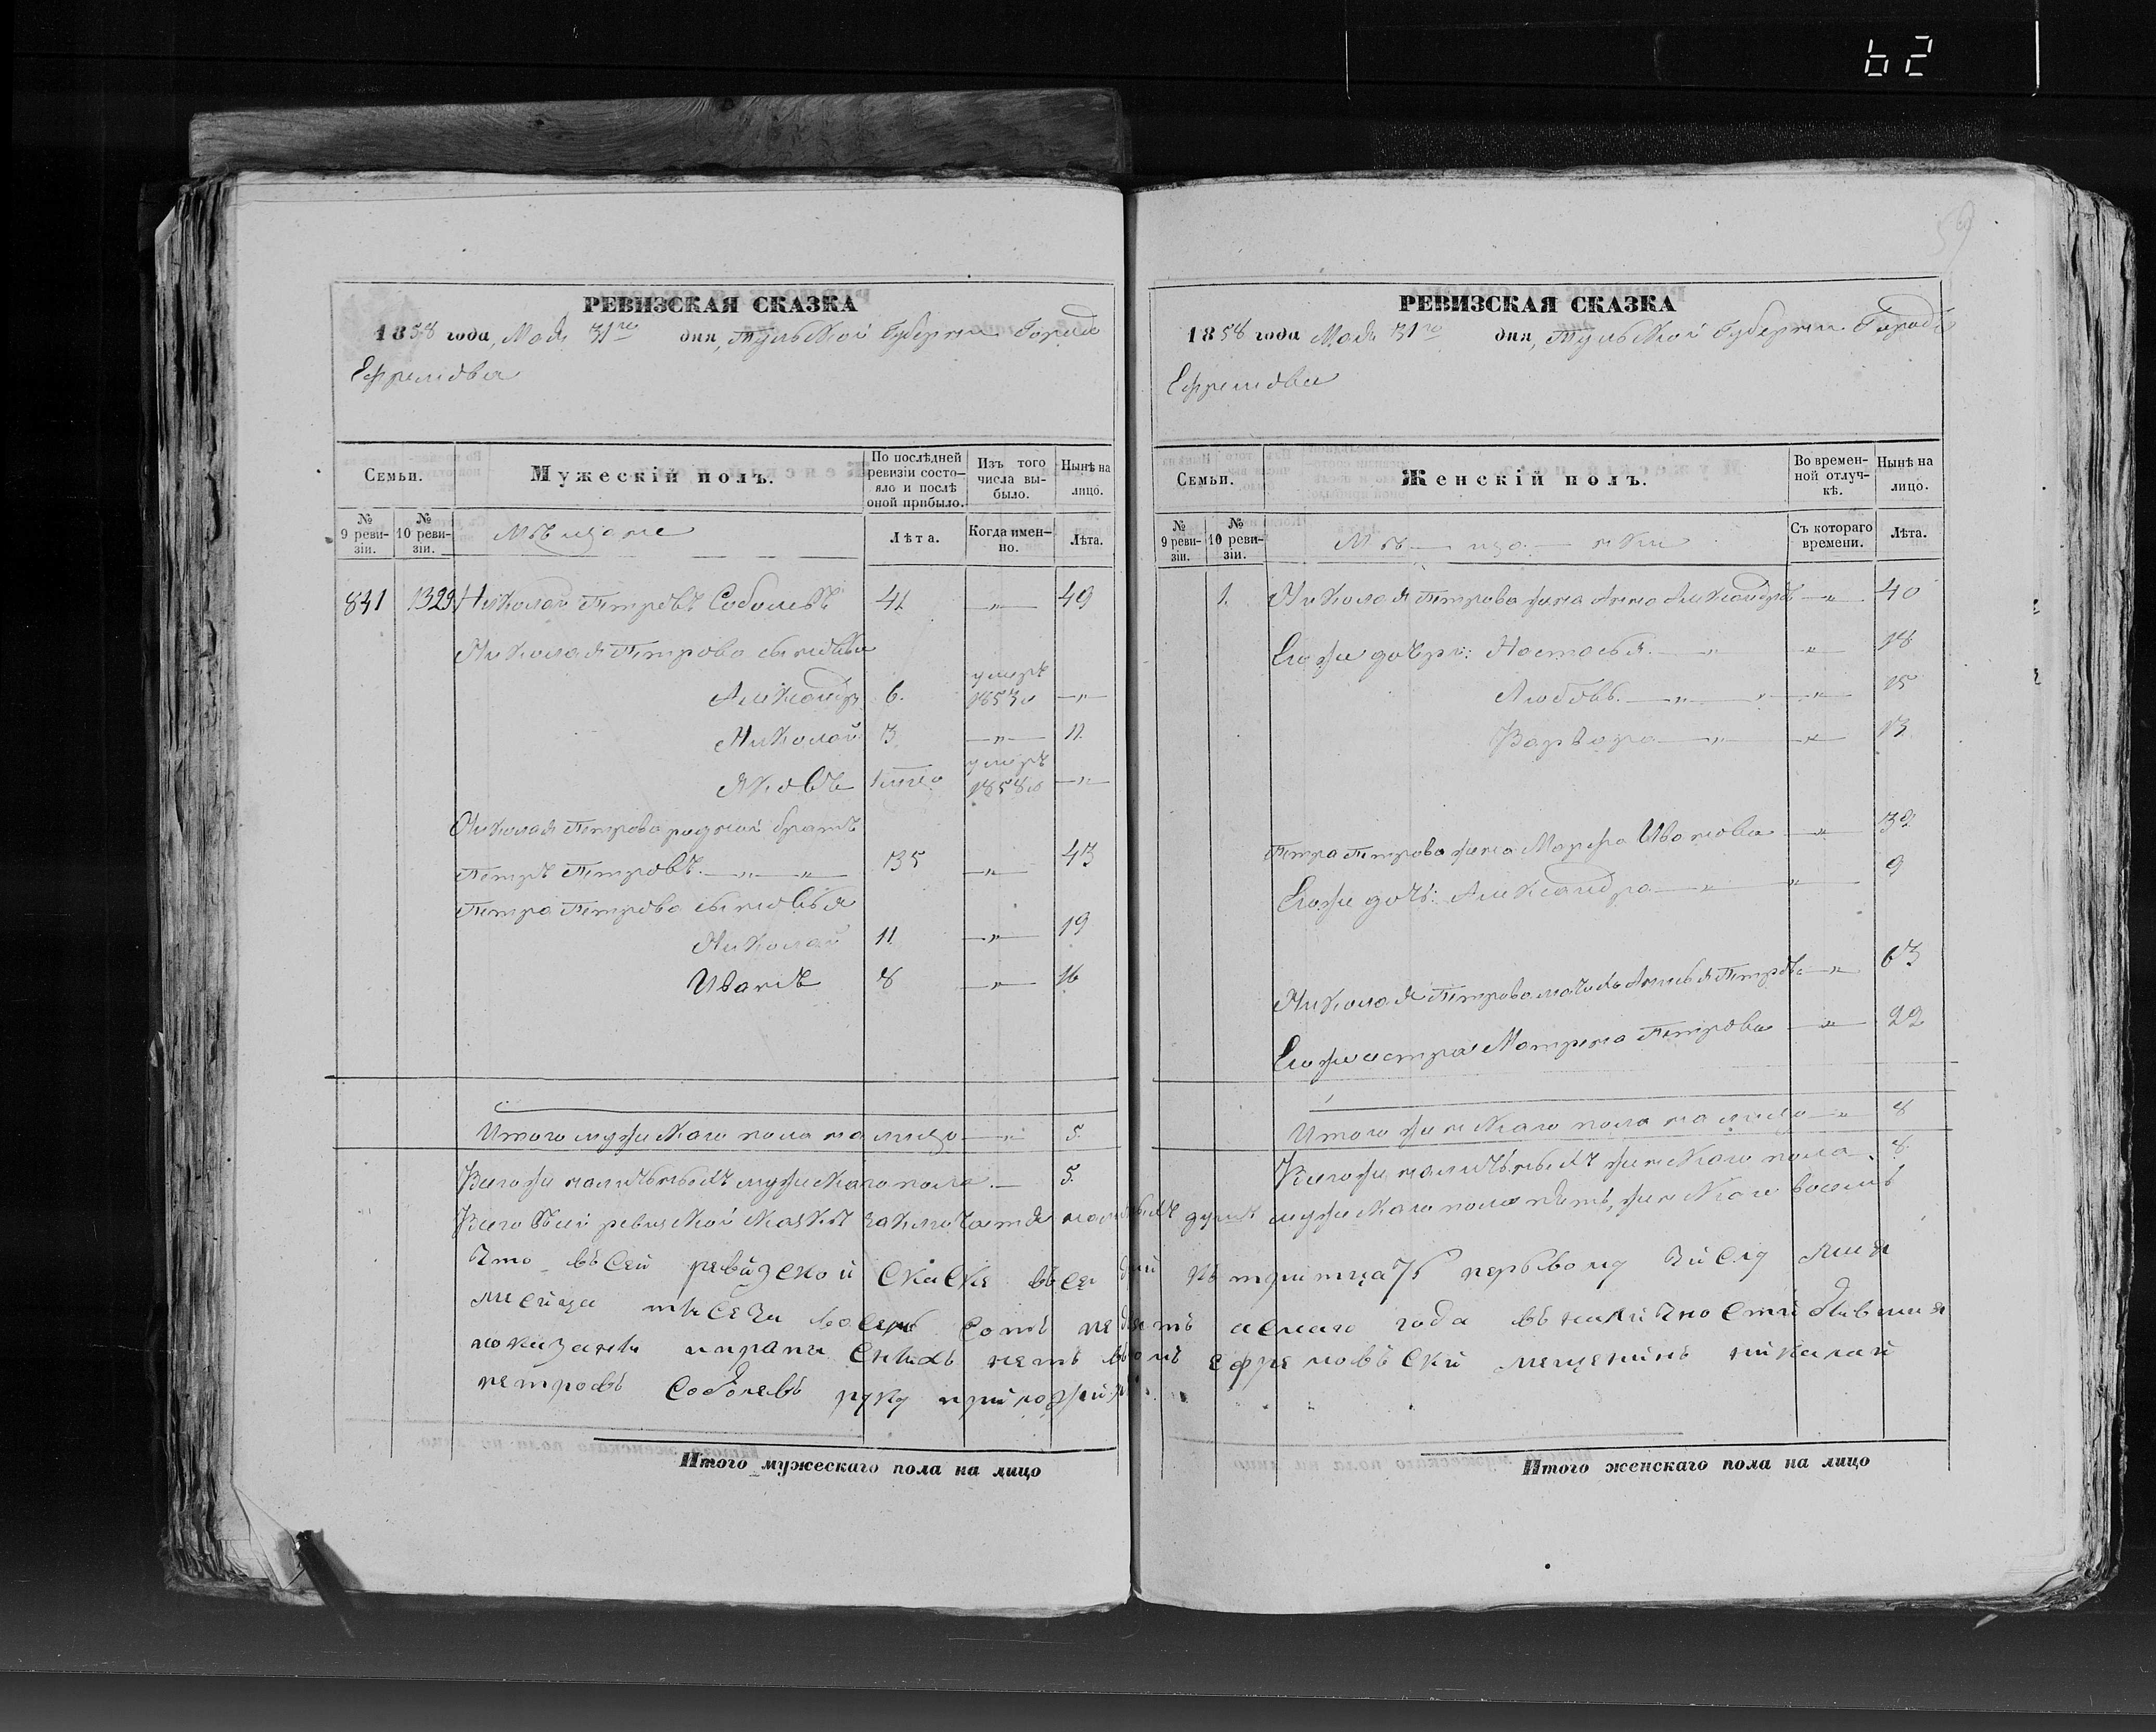 62
59
РЕВИЗСКАЯ СКАЗКА
1858 года, Маія 31го дня, Тульской Губерніи Города
Ефремова
Семьи.
Мужескій полъ.
По послѣдней ревизіи состояло и послѣ оной прибыло.
Изъ того числа выбыло.
Нынѣ на лицо.
№ 9 ревизіи.
№ 10 ревизіи.
Мѣщане
Лѣта.
Когда именно.
Лѣта.
841 1329 Николай Петровъ Соболевъ 41 —„— 49
Николая Петрова сыновья
Александръ 6. умеръ 1853го —„—
Николай 3 —„— 11
Яковъ умеръ 1858го —„—
Николая Петрова родной братъ
Петръ Петровъ. —„—„— 35 —„— 43
Петра Петрова сыновья
Николай 11 —„— 19
Иванъ 8 —„— 16
Итого мужескаго пола на лицо —„— 5.
Всего же наличныхъ мужескаго пола — 5.
Итого мужескаго пола на лицо
РЕВИЗСКАЯ СКАЗКА
1858 года Маія 31го дня, Тульской Губерніи Города
Ефремова
Семьи.
Женскій полъ.
Во временной отлучкѣ.
Нынѣ на лицо.
№ 9 ревизіи.
№ 10 ревизіи.
Мѣ— ща — нки
Съ котораго времени.
Лѣта.
1. Николая Петрова жена Анна Александров —„— 40
Его же дочери: Настасья. —„— —„— 18
Любовь. —„— „ —„— 15
Варвара —„— —„— 13
Петра Петрова жена Марфа Иванова —„— 39
Его же дочь: Александра —„— „ — 9
Николая Петрова Петрова —„— 63
Его же сестра Матрена Петрова —„— 22
Итого женскаго пола на лицо —„— 8
Всего же наличныхъ женскаго пола. 8.
Всего въ сей ревизской сказкѣ заключается наличныхъ душъ мужескаго пола пять, женскаго восемь
Что въ сей ревизской скаске въсе къ тритцать перьвому числу мия
месица тысеча восемь сотъ годa въ наличности бывшия
показаны и прапи сныхъ нетъ въ томъ ефремовъской мещенинъ никалай
петровъ соболевъ руку приложилъ
Итого женскаго пола на лицо